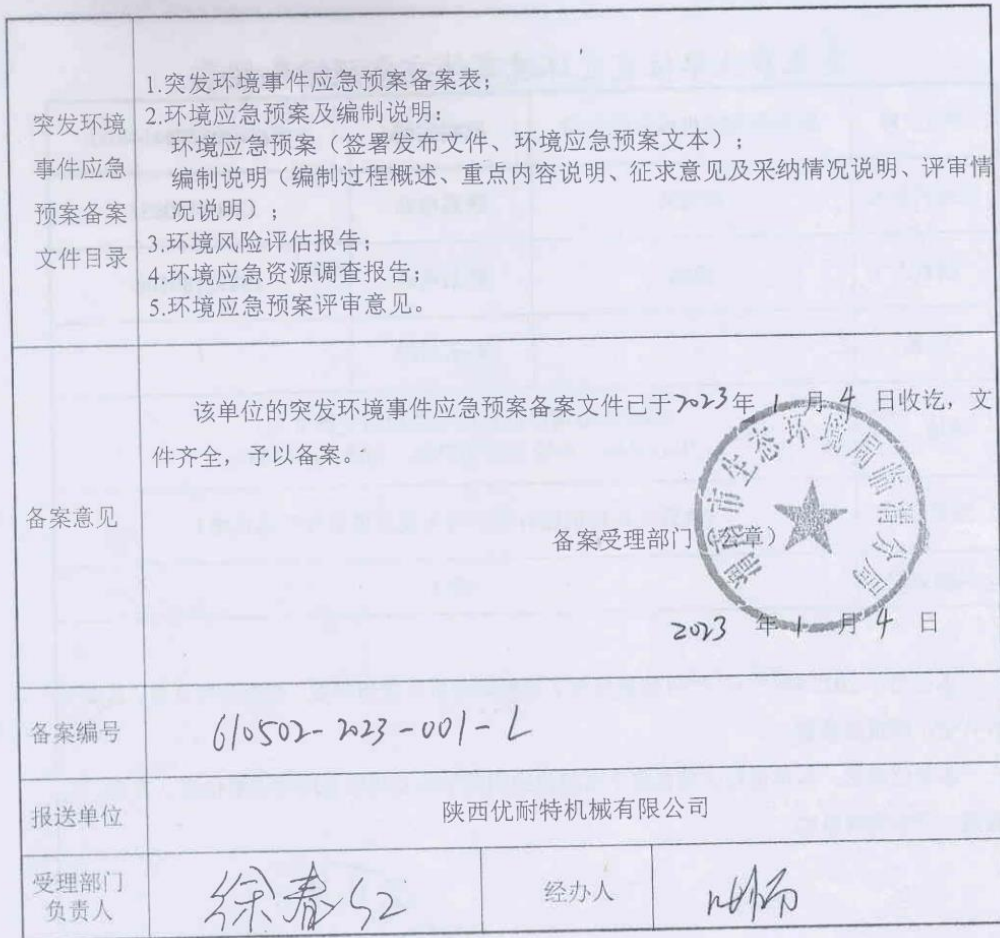 突发环境
事件应急
预案备案
文件目录
1.突发环境事件应急预案备案表;
2.环境应急预案及编制说明:
环境应急预案（签署发布文件、环境应急预案文本）;
编制说明（编制过程概述、重点内容说明、征求意见及采纳情况说明、评审情
况说明）;
3.环境风险评估报告;
4.环境应急资源调查报告;
5.环境应急预案评审意见。
备案意见
该单位的突发环境事件应急预案备案文件已于2023年1月4日收讫，文
件齐全，予以备案。
渭南市生态环境局临渭分局
备案受理部门（公章）
2023 年 1 月 4 日
备案编号
610502-2023-001-L
报送单位
陕西优耐特机械有限公司
受理部门
负责人
徐春红
经办人